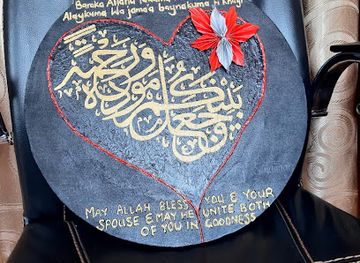 Baraka Allahu
Alaykuma Wa jama'a baynakuma Fi Khayr
وجعل بينكم مودة ورحمة
MAY ALLAH BLESS YOU & YOUR
SPOUSE & MAY HE UNITE BOTH
OF YOU IN GOODNESS